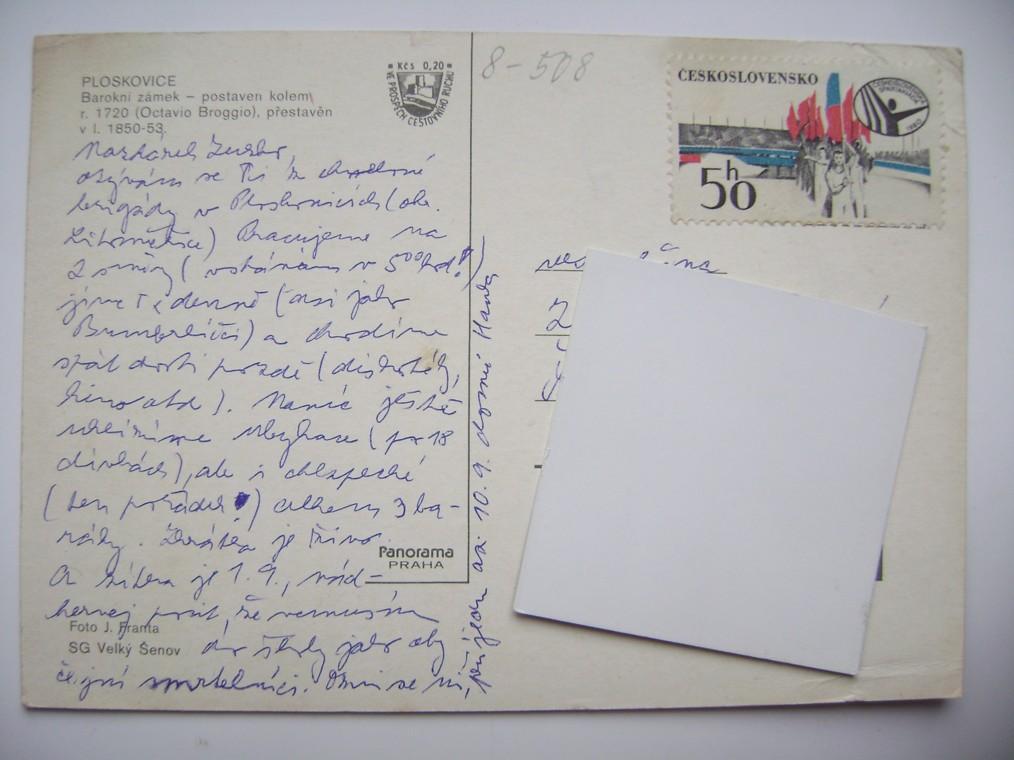 PLOSKOVICE
Barokní zámek – postaven kolem
r. 1720 (Octavio Broggio), přestavěn
v l. 1850-53.
Kčs 0,20
VE PROSPĚCH CESTOVNÍHO RUCHU
8-508
ČESKOSLOVENSKO
ČESKOSLOVENSKÁ SPARTAKIÁDA 1980
50 h
ozývám se Ti z chmelové
brigády v Ploskovicích (okr.
Litoměřice) Pracujeme na
2 směny (vstáváme v 5⁰⁰ hod!!)
jíme 7x denně (asi jako
Bumbrlíčci) a chodíme
spát dosti pozdě (diskotéky,
kino atd). Navíc ještě
ubytovace (po 18
dívkách), ale i chlapecké
(ten pořádek) celkem 3 ba-
ráky. Zkrátka je živo.
A zítra je 1.9., nád-
hernej pocit, že nemusím
do školy jako
smrtelníci. se mi,
přijedu až 10.9. domů Hanka
Panorama
PRAHA
Foto J. Franta
SG Velký Šenov